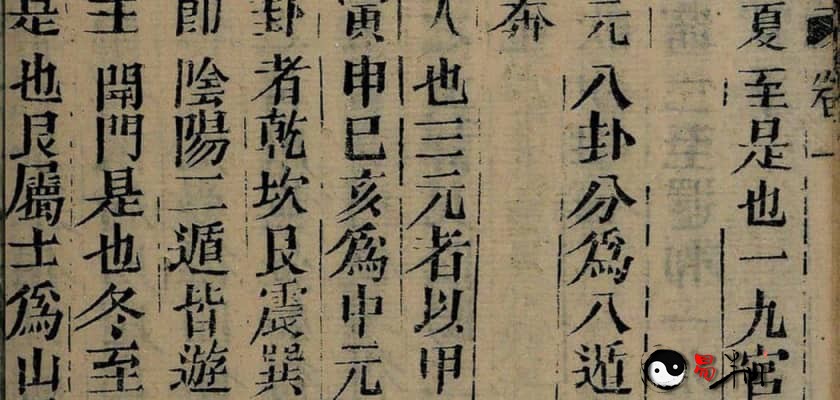 卷一
夏至是也一九宫
元八卦分為八遁
奔
人也三元者以甲
寅申巳亥為中元
卦者乾坎艮震巽
即陰陽二遁皆遊
主開門是也冬至
是也艮屬土為山
易